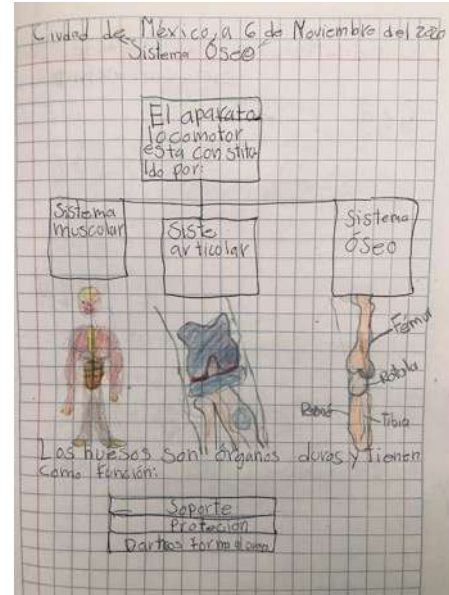 Ciudad de México, a 6 de Noviembre del 2020
Sistema Óseo
El aparato
locomotor
está constitu
ido por:
Sistema
muscolar
Siste
articolar
Sistema
Óseo
Fémur
Rotula
Tibia
Los huesos son órganos duros y tienen
como función:
Soporte
Proteción
Darnos forma